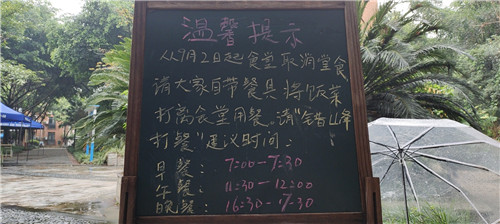 温馨提示
从9月2日起食堂取消堂食
请大家自带餐具将饭菜
打离食堂用餐。请"错峰
打餐"建议时间:
早餐: 7:00-7:30
午餐: 11:30-12:00
晚餐: 16:30-17:30